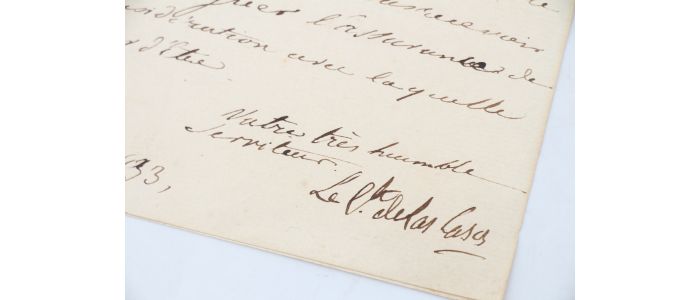 l'assurance de
considération avec laquelle
d'être
Votre très humble
Serviteur.
33,
Le Cte de las Cases